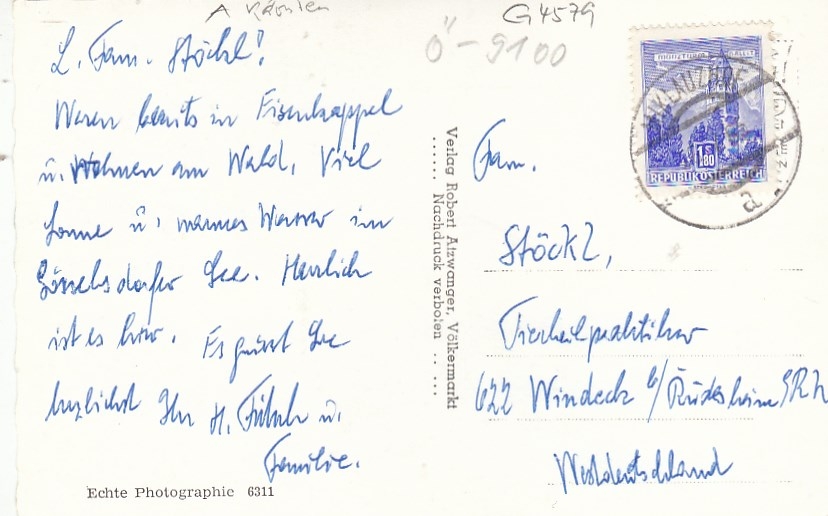 A Kärnten
G4579
Ö-9100
L. Fam. Stöckl!
Waren bereits in Eisenkappel
u. Wohnen am Wald. Viel
Sonne u. warmes Wasser im
Gösselsdorfer See. Herrlich
ist es hier. Es grüsst Sie
herzlichst Ihr H. u.
Familie.
Echte Photographie 6311
Verlag Robert Atzwanger, Völkermarkt
...... Nachdruck verboten .. ...
MÜNZTURM HALL I.T.
1 S 80
REPUBLIK ÖSTERREICH
a
Fam.
Stöckl,
Tierheilpraktiker
622 Windeck b/Rüdesheim/Rh
Westdeutschland